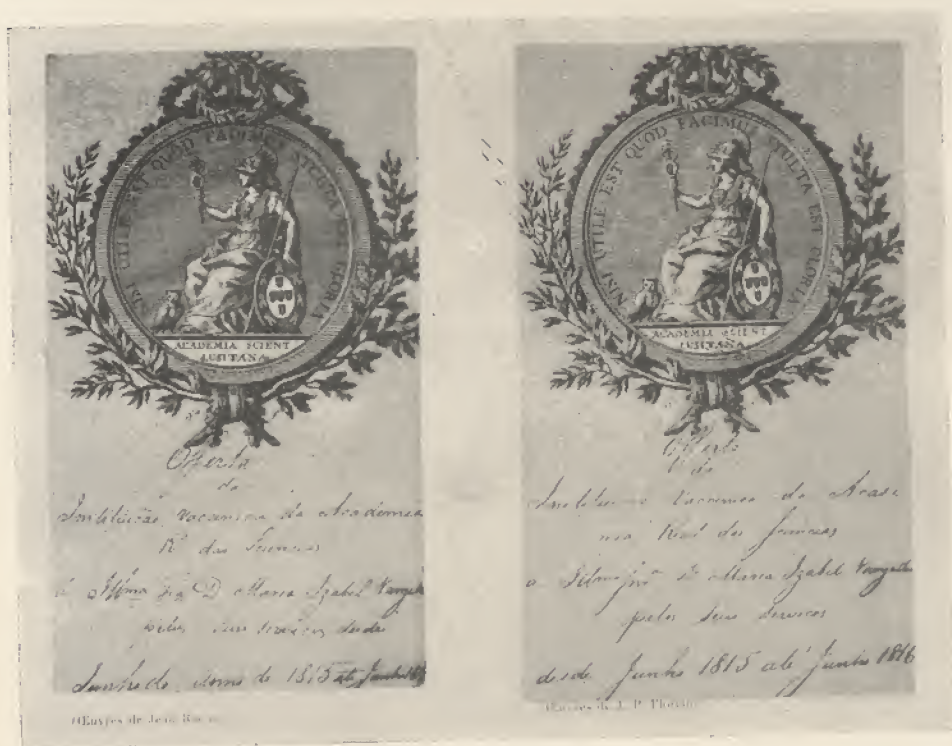 UTILE EST QUOD FACIMUS STULTA EST GLORIA
ACADEMIA SCIENT
LUSITANA
Offerta
da
Instituição Vaccinica da Academia
Rl das Sciencias
á Illma Sra D. Maria Izabel
pelos seus serviços desde
Junho do anno de 1815 até Junho
Œuvres de Jean
NISI UTILE EST QUOD FACIMUS STULTA EST GLORIA
ACADEMIA SCIENT
LUSITANA
Offerta
da
Instituição Vaccinica da Acade
mia Real das Sciencias
a Illma Snra D. Maria Izabel
pelos seus serviços
desde Junho 1815 até Junho 1816
Œuvres de J. P.